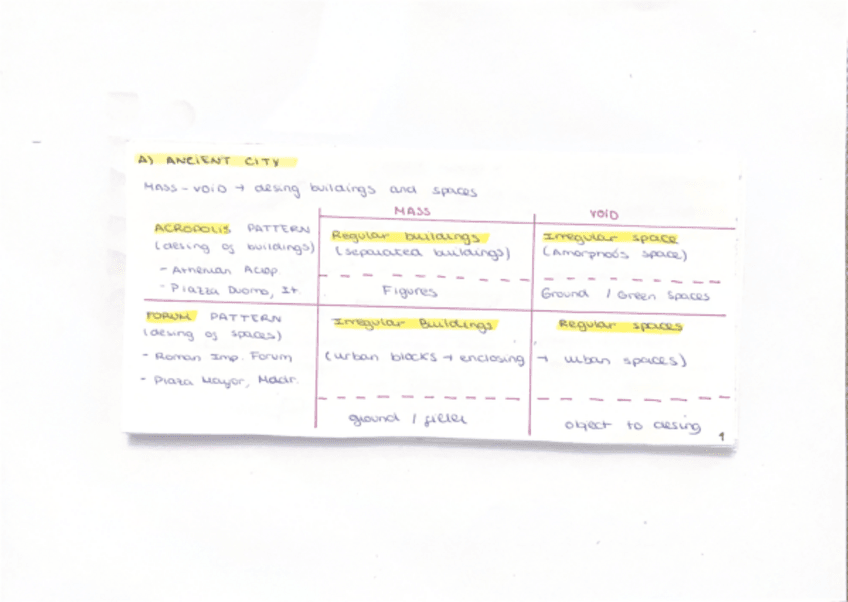 A) ANCIENT CITY
MASS - VOID → desing buildings and spaces
MASS VOID
ACROPOLIS PATTERN
(desing of buildings)
- Athenian Acrop.
- Piazza Duomo, It.
Regular buildings
(separated buildings)
Figures
Irregular space
(Amorphoos space)
Ground / Green Spaces
FORUM PATTERN
(desing of spaces)
- Roman Imp. Forum
- Plaza Mayor, Madr.
Irregular Buildings
Regular spaces
(urban blocks → enclosing → urban spaces)
ground /
object to desing
1